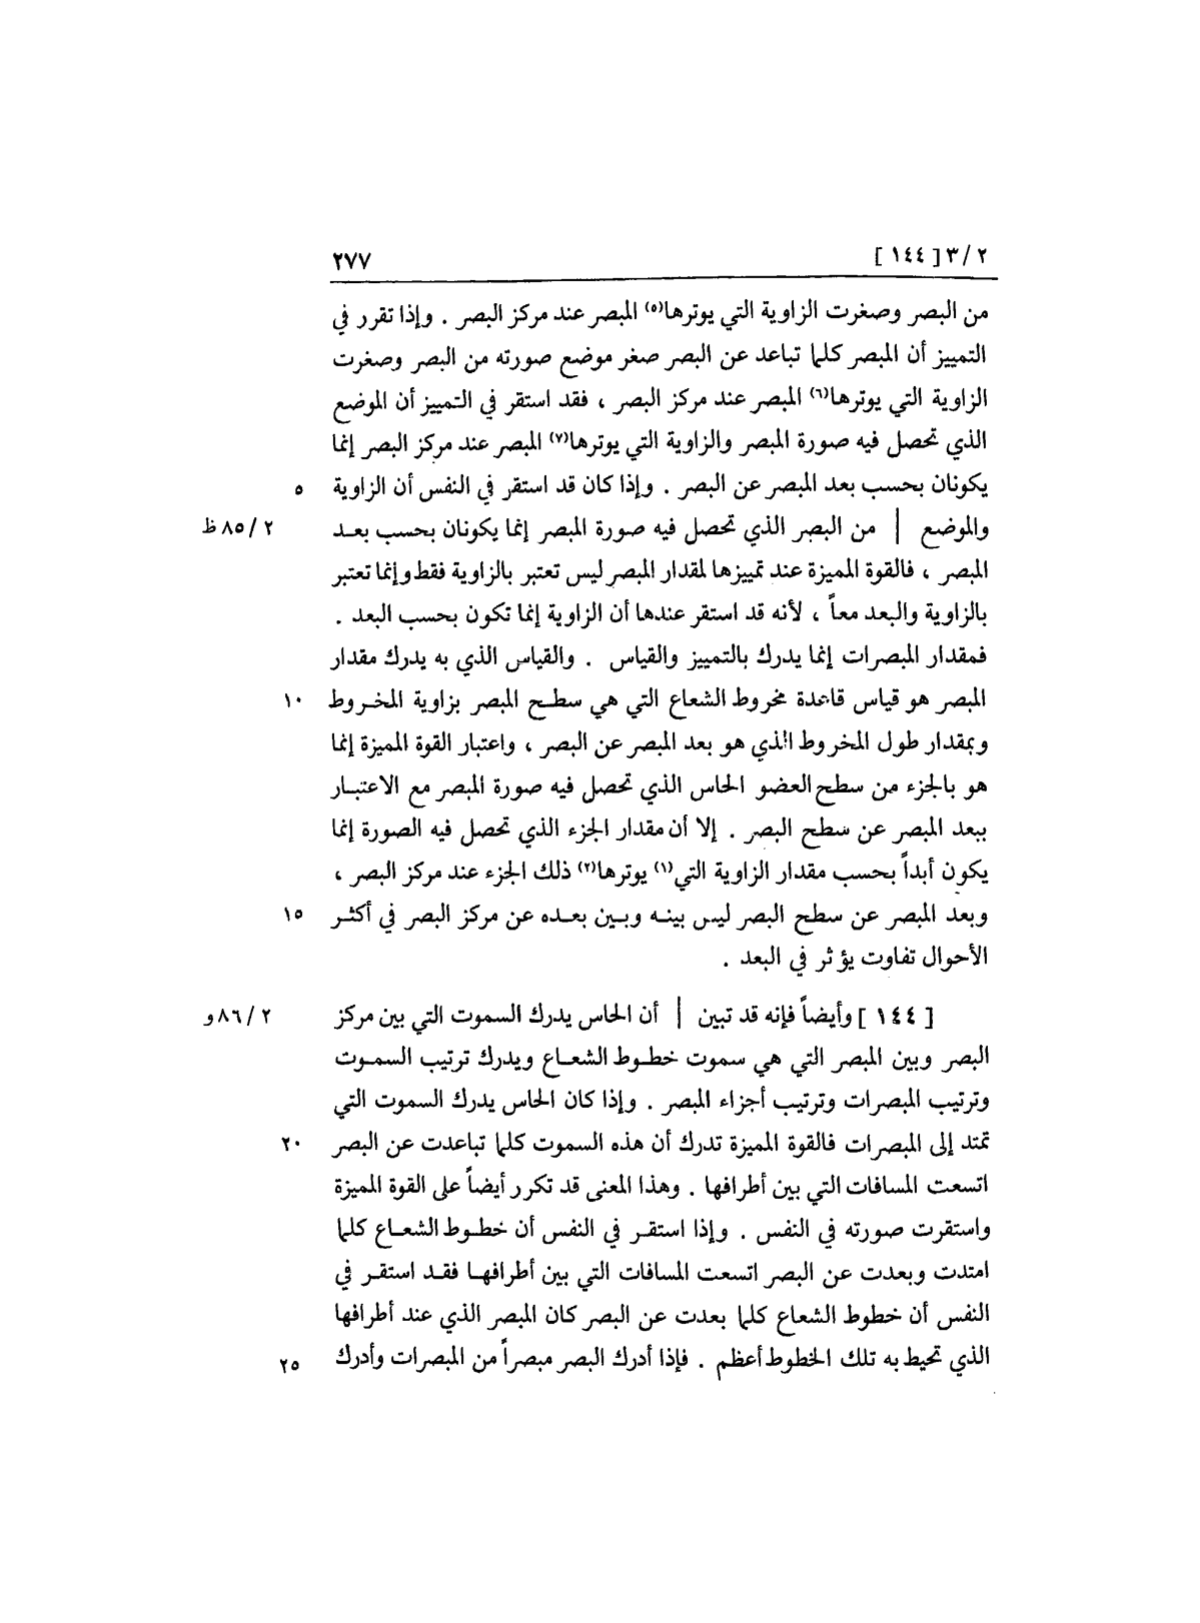 ٢ / ٣ [ ١٤٤ ] ٢٧٧
من البصر وصغرت الزاوية التي يوترها(٥) المبصر عند مركز البصر . وإذا تقرر في
التمييز أن المبصر كلما تباعد عن البصر صغر موضع صورته من البصر وصغرت
الزاوية التي يوترها(٦) المبصر عند مركز البصر ، فقد استقر في التمييز أن الموضع
الذي تحصل فيه صورة المبصر والزاوية التي يوترها(٧) المبصر عند مركز البصر إنما
يكونان بحسب بعد المبصر عن البصر . وإذا كان قد استقر في النفس أن الزاوية ٥
والموضع | من البصر الذي تحصل فيه صورة المبصر إنما يكونان بحسب بعد ٢ / ٨٥ ظ
المبصر ، فالقوة المميزة عند تمييزها لمقدار المبصر ليس تعتبر بالزاوية فقط وإنما تعتبر
بالزاوية والبعد معاً ، لأنه قد استقر عندها أن الزاوية إنما تكون بحسب البعد .
فمقدار المبصرات إنما يدرك بالتمييز والقياس . والقياس الذي به يدرك مقدار
المبصر هو قياس قاعدة مخروط الشعاع التي هي سطح المبصر بزاوية المخروط ١٠
وبمقدار طول المخروط الذي هو بعد المبصر عن البصر ، واعتبار القوة المميزة إنما
هو بالجزء من سطح العضو الحاس الذي تحصل فيه صورة المبصر مع الاعتبار
ببعد المبصر عن سطح البصر . إلا أن مقدار الجزء الذي تحصل فيه الصورة إنما
يكون أبداً بحسب مقدار الزاوية التي(١) يوترها(٢) ذلك الجزء عند مركز البصر ،
وبعد المبصر عن سطح البصر ليس بينه وبين بعده عن مركز البصر في أكثر ١٥
الأحوال تفاوت يؤثر في البعد .
[ ١٤٤ ] وأيضاً فإنه قد تبين | أن الحاس يدرك السموت التي بين مركز ٢ / ٨٦ و
البصر وبين المبصر التي هي سموت خطوط الشعاع ويدرك ترتيب السموت
وترتيب المبصرات وترتيب أجزاء المبصر . وإذا كان الحاس يدرك السموت التي
تمتد إلى المبصرات فالقوة المميزة تدرك أن هذه السموت كلما تباعدت عن البصر ٢٠
اتسعت المسافات التي بين أطرافها . وهذا المعنى قد تكرر أيضاً على القوة المميزة
واستقرت صورته في النفس . وإذا استقر في النفس أن خطوط الشعاع كلما
امتدت وبعدت عن البصر اتسعت المسافات التي بين أطرافها فقد استقر في
النفس أن خطوط الشعاع كلما بعدت عن البصر كان المبصر الذي عند أطرافها
الذي تحيط به تلك الخطوط أعظم . فإذا أدرك البصر مبصراً من المبصرات وأدرك ٢٥